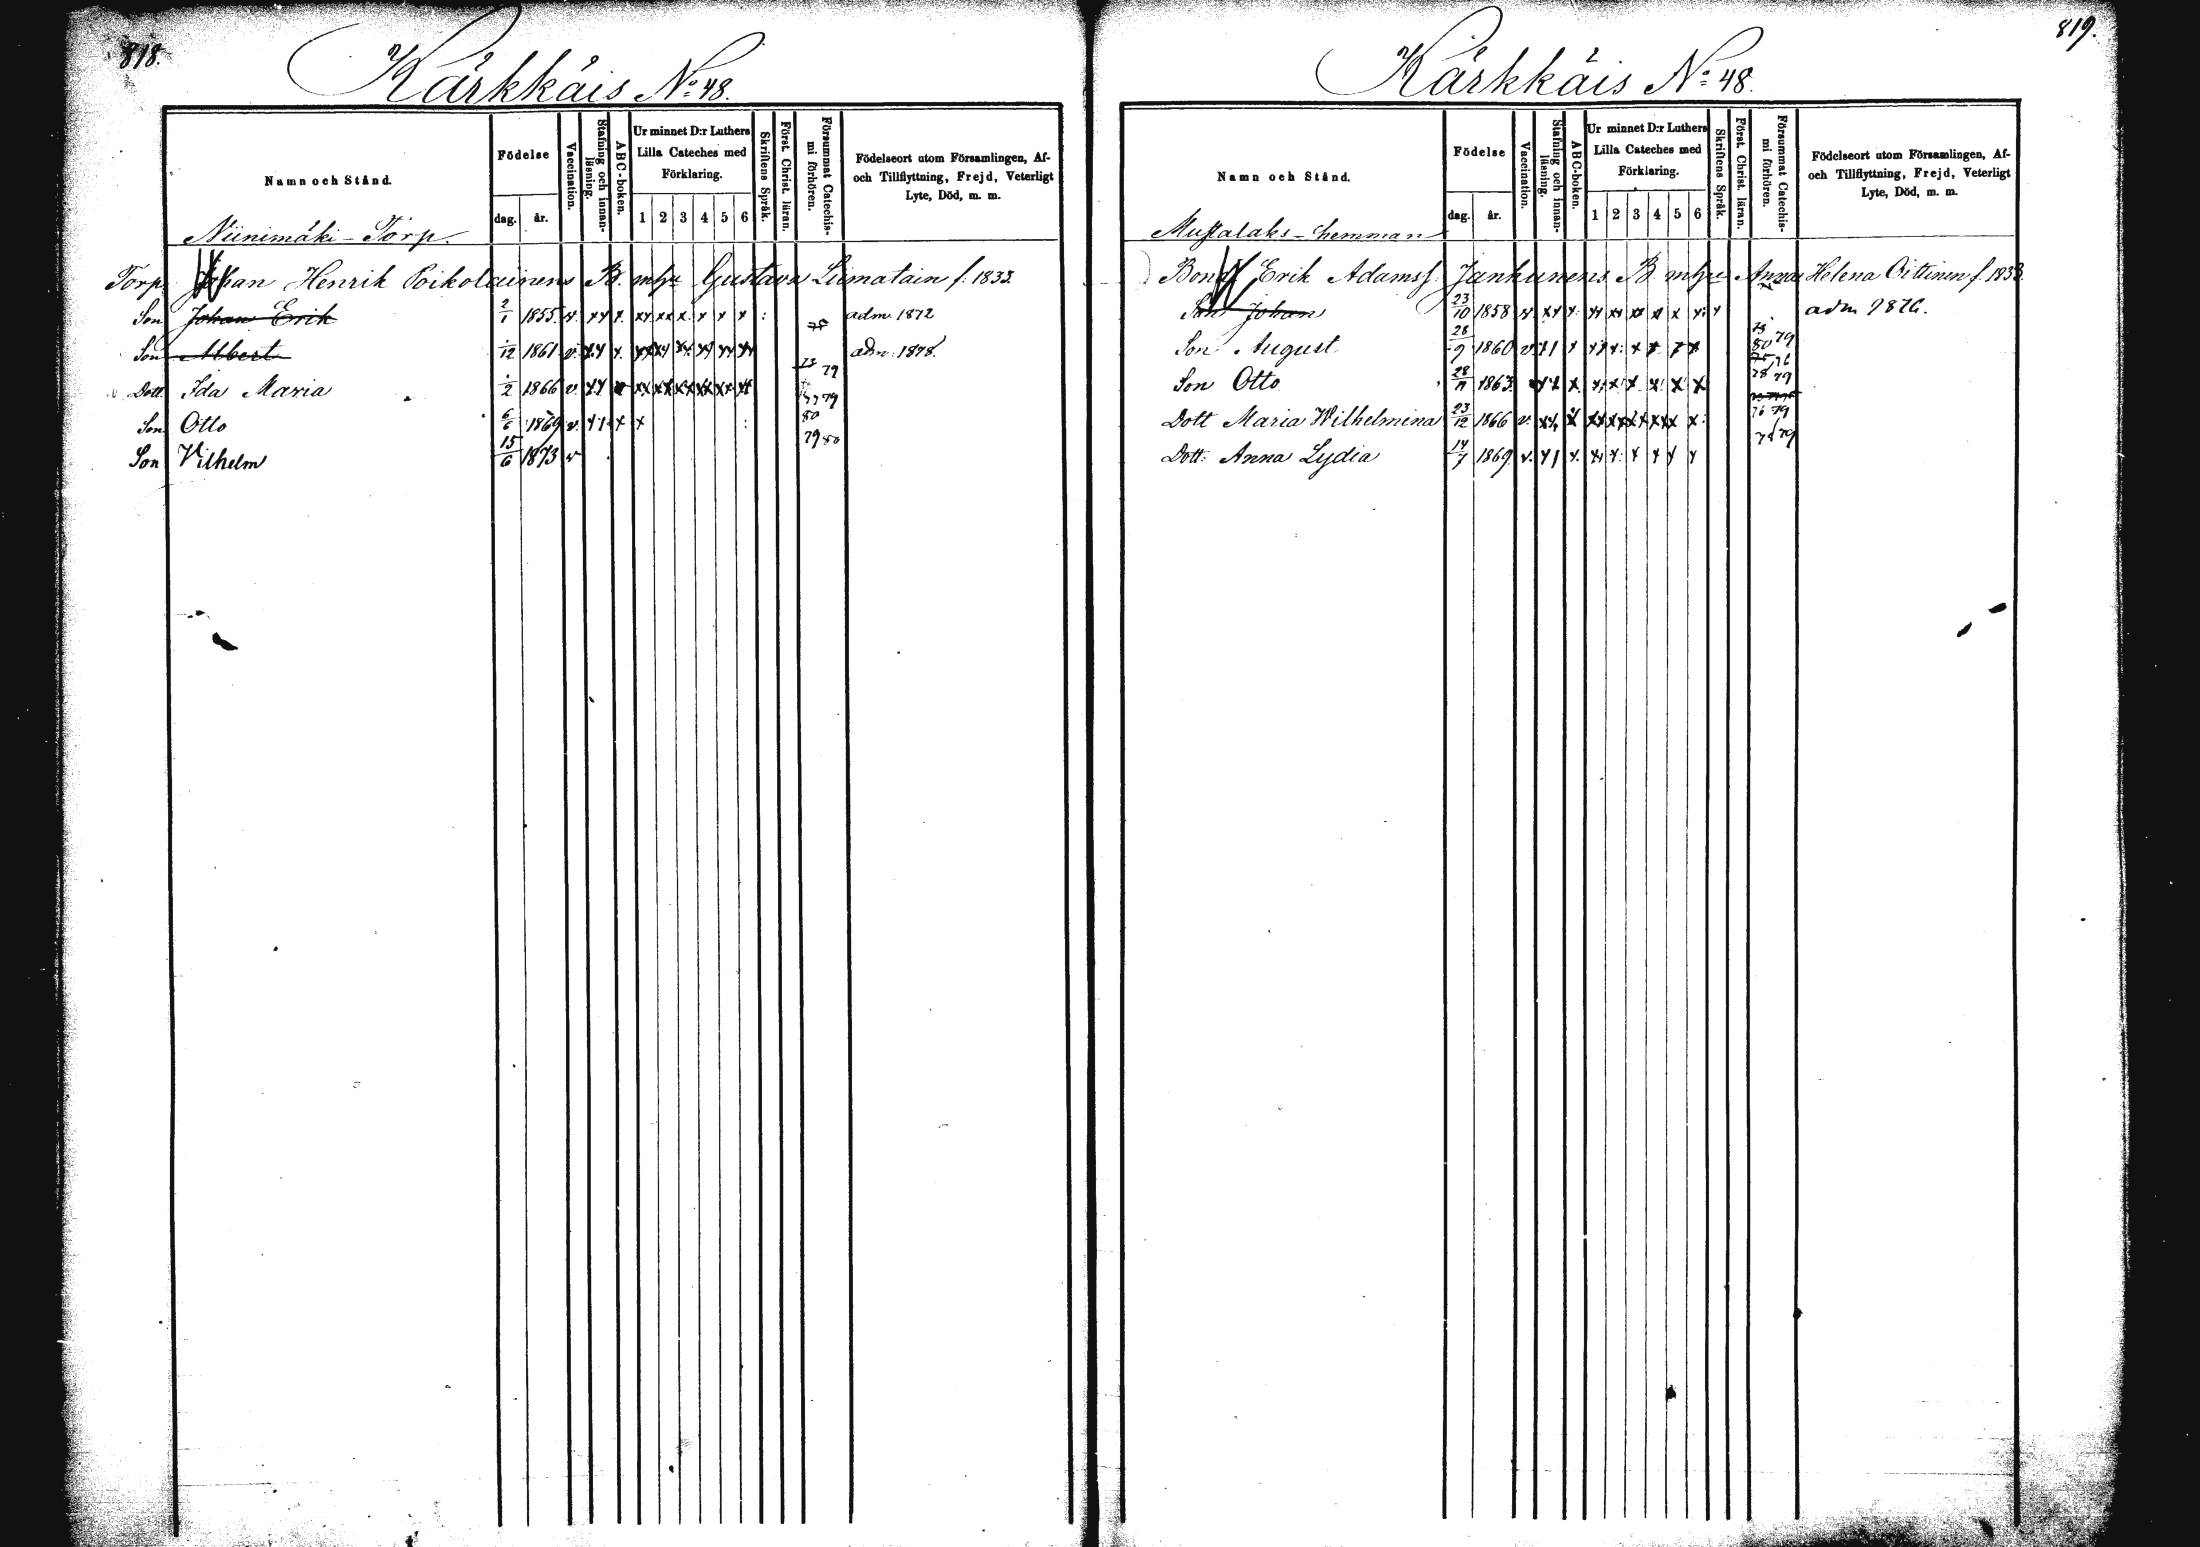 818.
Kärkkäis No 48.
Namn och Stånd.
Födelse
dag. år.
Vaccination.
Stafning och innanläsning.
ABC-boken.
Ur minnet D:r Luthers Lilla Cateches med Förklaring.
1 2 3 4 5 6
Skriftens Språk.
Först. Christ. läran.
Försummat Catechismi förhören.
Födelseort utom Församlingen, Af- och Tillflyttning, Frejd, Veterligt Lyte, Död, m. m.
Niinimäki-Torp.
Torp. Johan Henrik Poikolainens B. m. hu Gustava Liimatain f. 1833
Son Johan Erik 2/1 1855. v. adm. 1872
Son Albert /12 1861 v. 79 adm. 1878.
Dott. Ida Maria /2 1866 v. 77 79
Son Otto 6/6 1869 v. 80
Son Vilhelm 15/6 1873 v 79 80
819.
Kärkkäis No 48.
Namn och Stånd.
Födelse
dag. år.
Vaccination.
Stafning och innanläsning.
ABC-boken.
Ur minnet D:r Luthers Lilla Cateches med Förklaring.
1 2 3 4 5 6
Skriftens Språk.
Först. Christ. läran.
Försummat Catechismi förhören.
Födelseort utom Församlingen, Af- och Tillflyttning, Frejd, Veterligt Lyte, Död, m. m.
Mustalaks-hemman
Bond Erik Adamss. Janhunens B. m. hu Anna Helena Oittinen f. 1833
Son Johan 23/10 1858 v. adm 1876.
Son August 28/9 1860 v. 80 79
Son Otto 28/11 1863 78 79
Dott Maria Wilhelmina 23/12 1866 v. 76 79
Dott. Anna Lydia 14/7 1869. v. 79